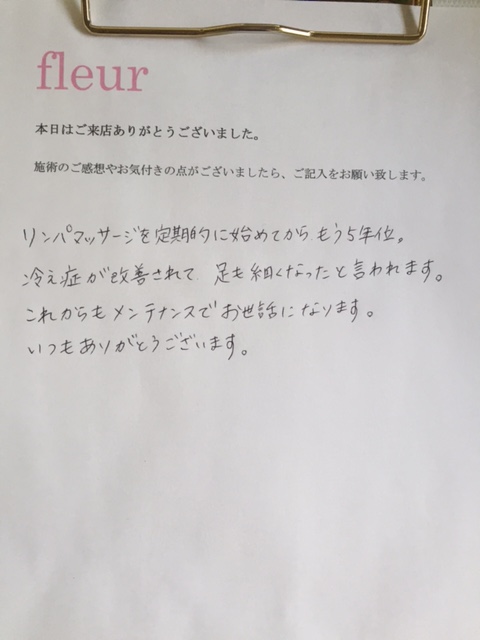 fleur
本日はご来店ありがとうございました。
施術のご感想やお気付きの点がございましたら、ご記入をお願い致します。
リンパマッサージを定期的に始めてからもう5年位。
冷え症が改善されて、足も細くなったと言われます。
これからもメンテナンスでお世話になります。
いつもありがとうございます。